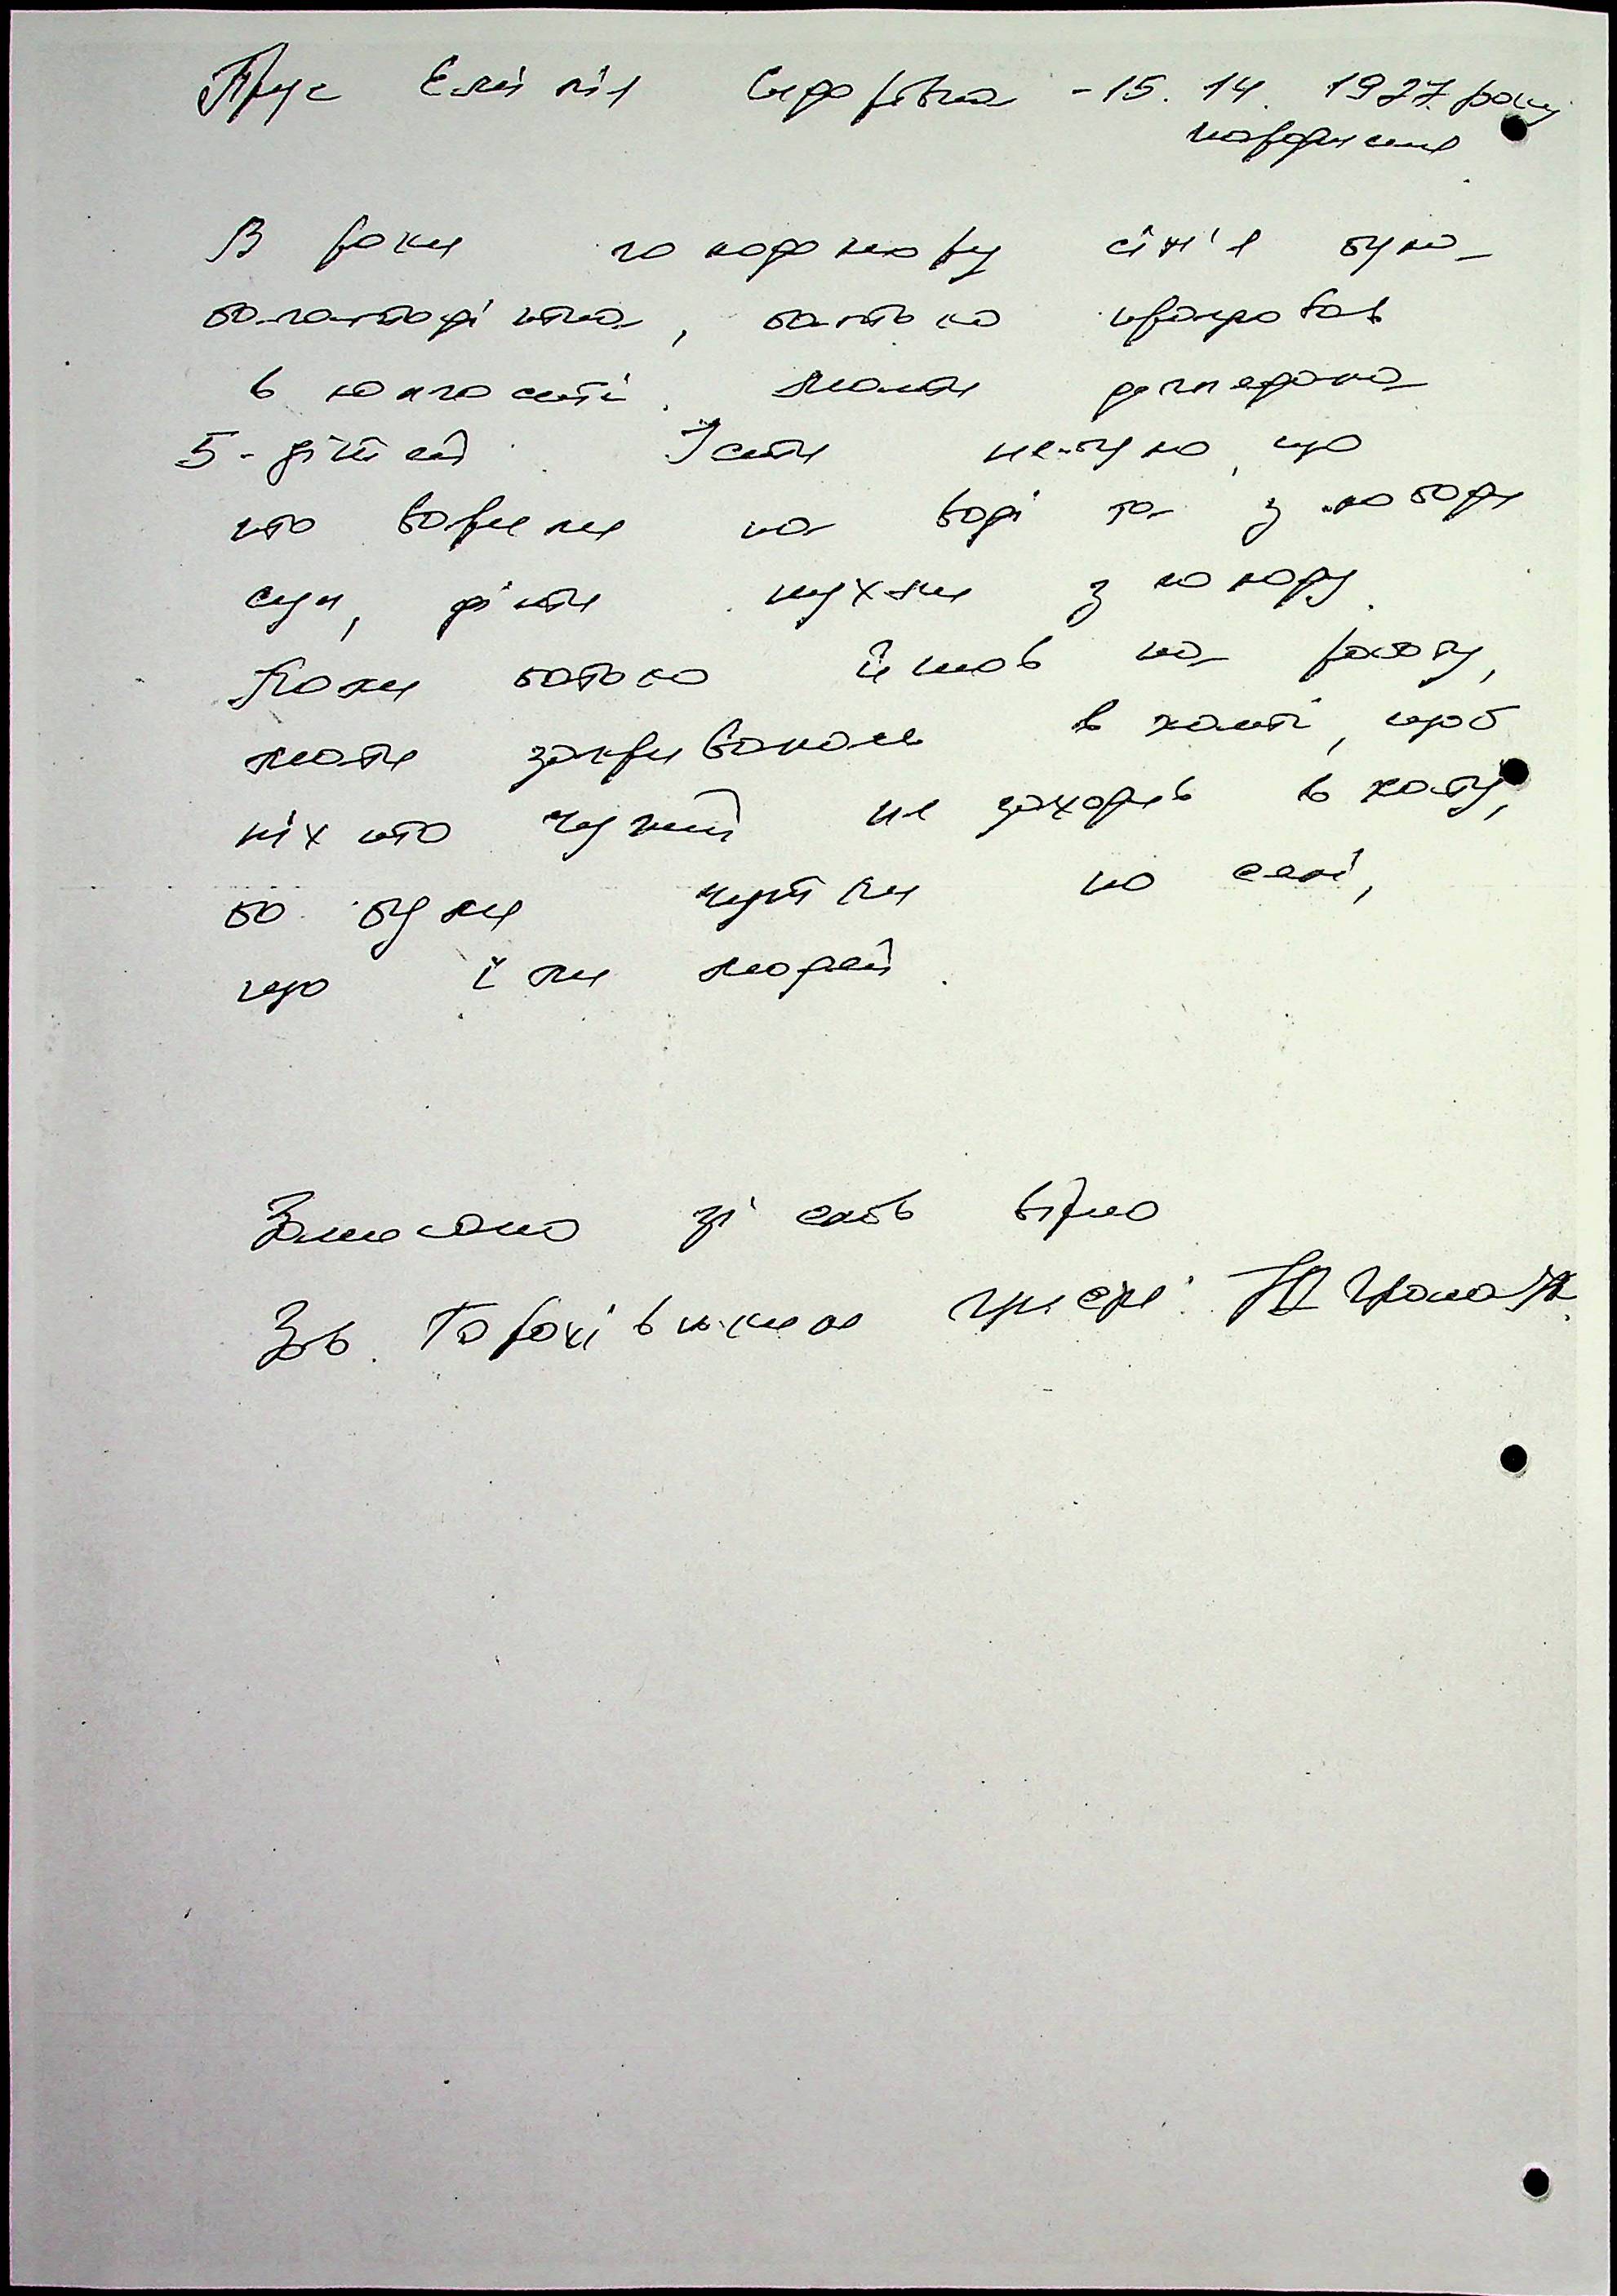 Прус Емілія Сидорівна - 15. 14. 1927 року
народження
В роки голодомору сім'я була
багатодітна, батько працював
в колгоспі. Мати доглядала
5-дітей. Їсти не було, що
то варили на воді та з лободи
суп, діти пухли з голоду.
Коли батько йшов на роботу,
мати закривалась в хаті, щоб
ніхто чужий не заходив в хату,
бо були чутки по селі,
що їли людей.
Записано зі слів вірно
Зав. Горохівською